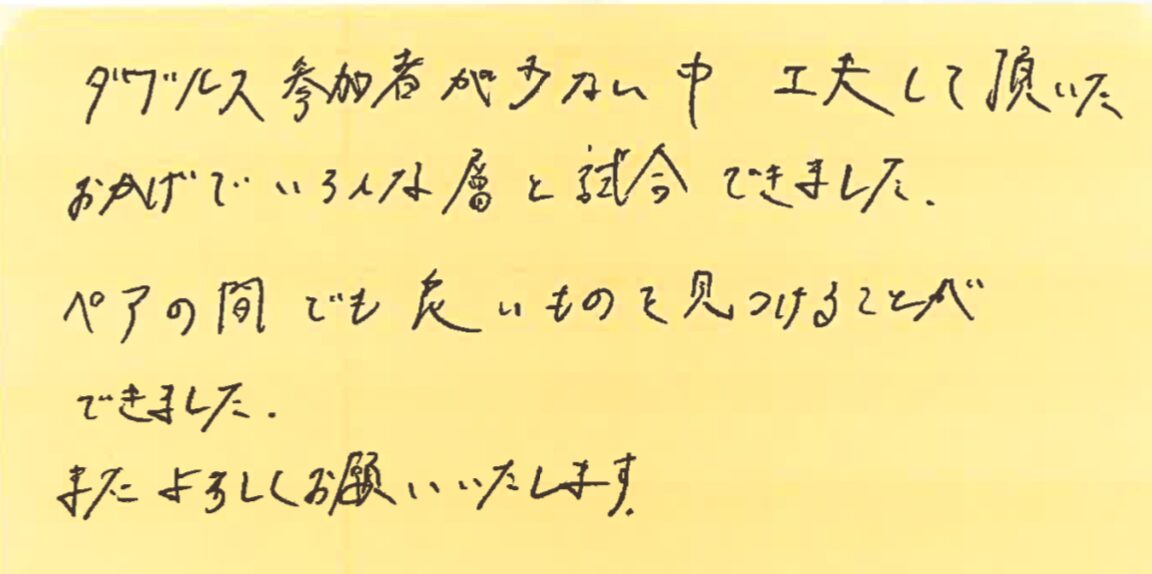 ダブルス参加者が少ない中 工夫して頂いた
おかげでいろんな層と試合できました.
ペアの間でも良いものを見つけることが
できました.
またよろしくお願いいたします.